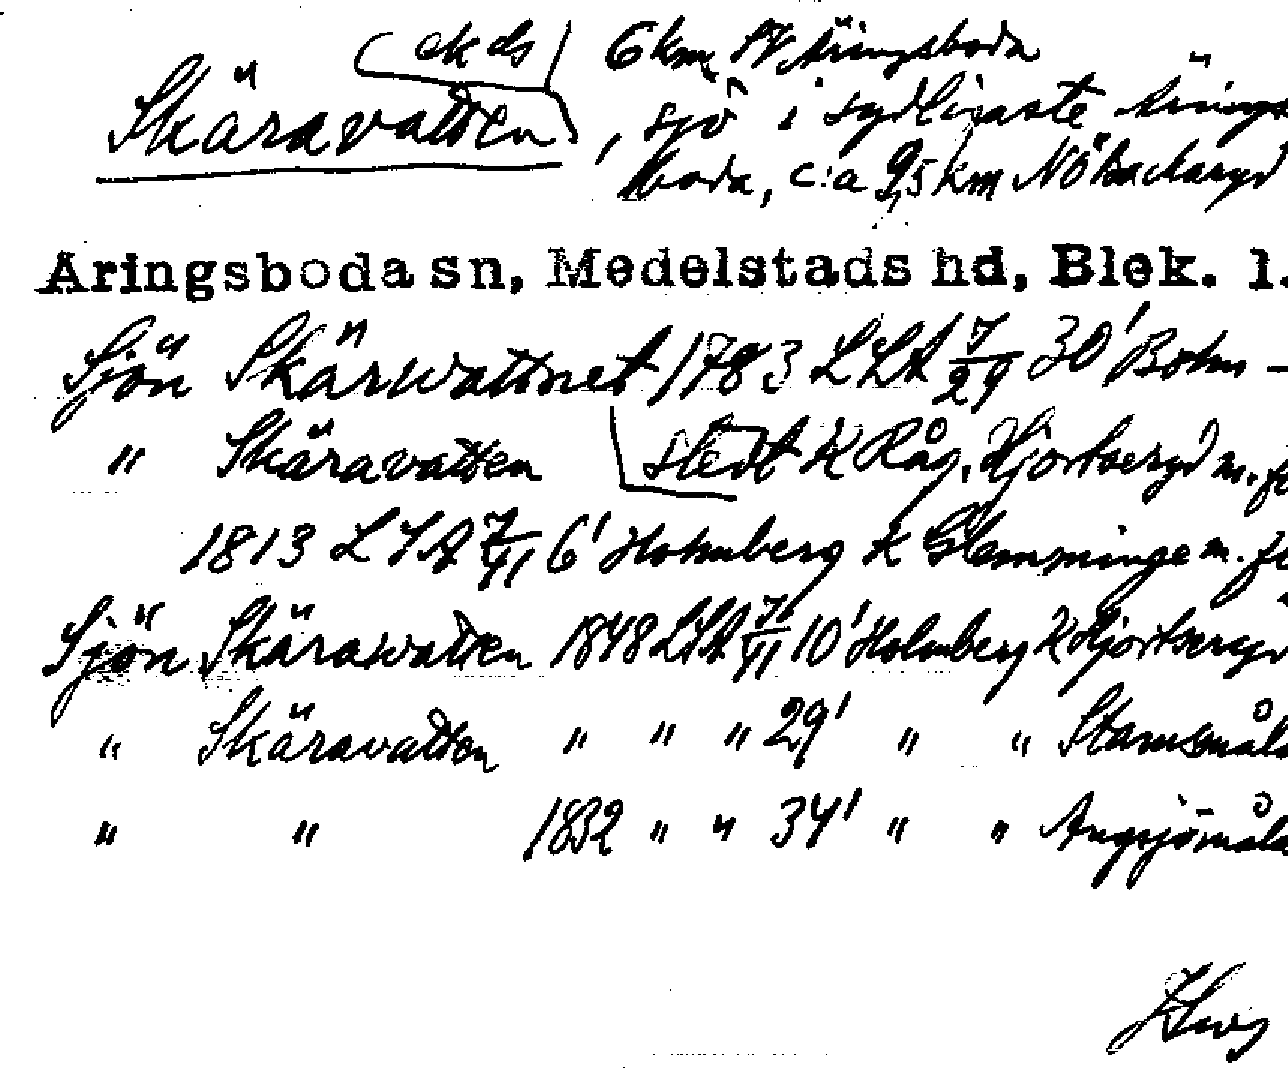 (ek ds) 6 km SV Äringsboda
Skäravatten, sjö i sydligaste Ärings
boda, c:a 2,5 km NÖ Backaryd
Äringsboda sn, Medelstads hd, Blek. l.
Sjön Skärwattnet 1783 LSA 7/29 30' Bohm-
" Skäravatten stedt K Råg. Hjortseryd m. fl
1813 LSA 7/11 6' Holmberg K Glemminge m. fl
Sjön Skärawatten 1848 LSA 7/11 10' Holmberg K Hjortseryd
" Skäravatten " " " 29' " " Stamsmåla
" " 1832 " " 34' " " Angsjömåla